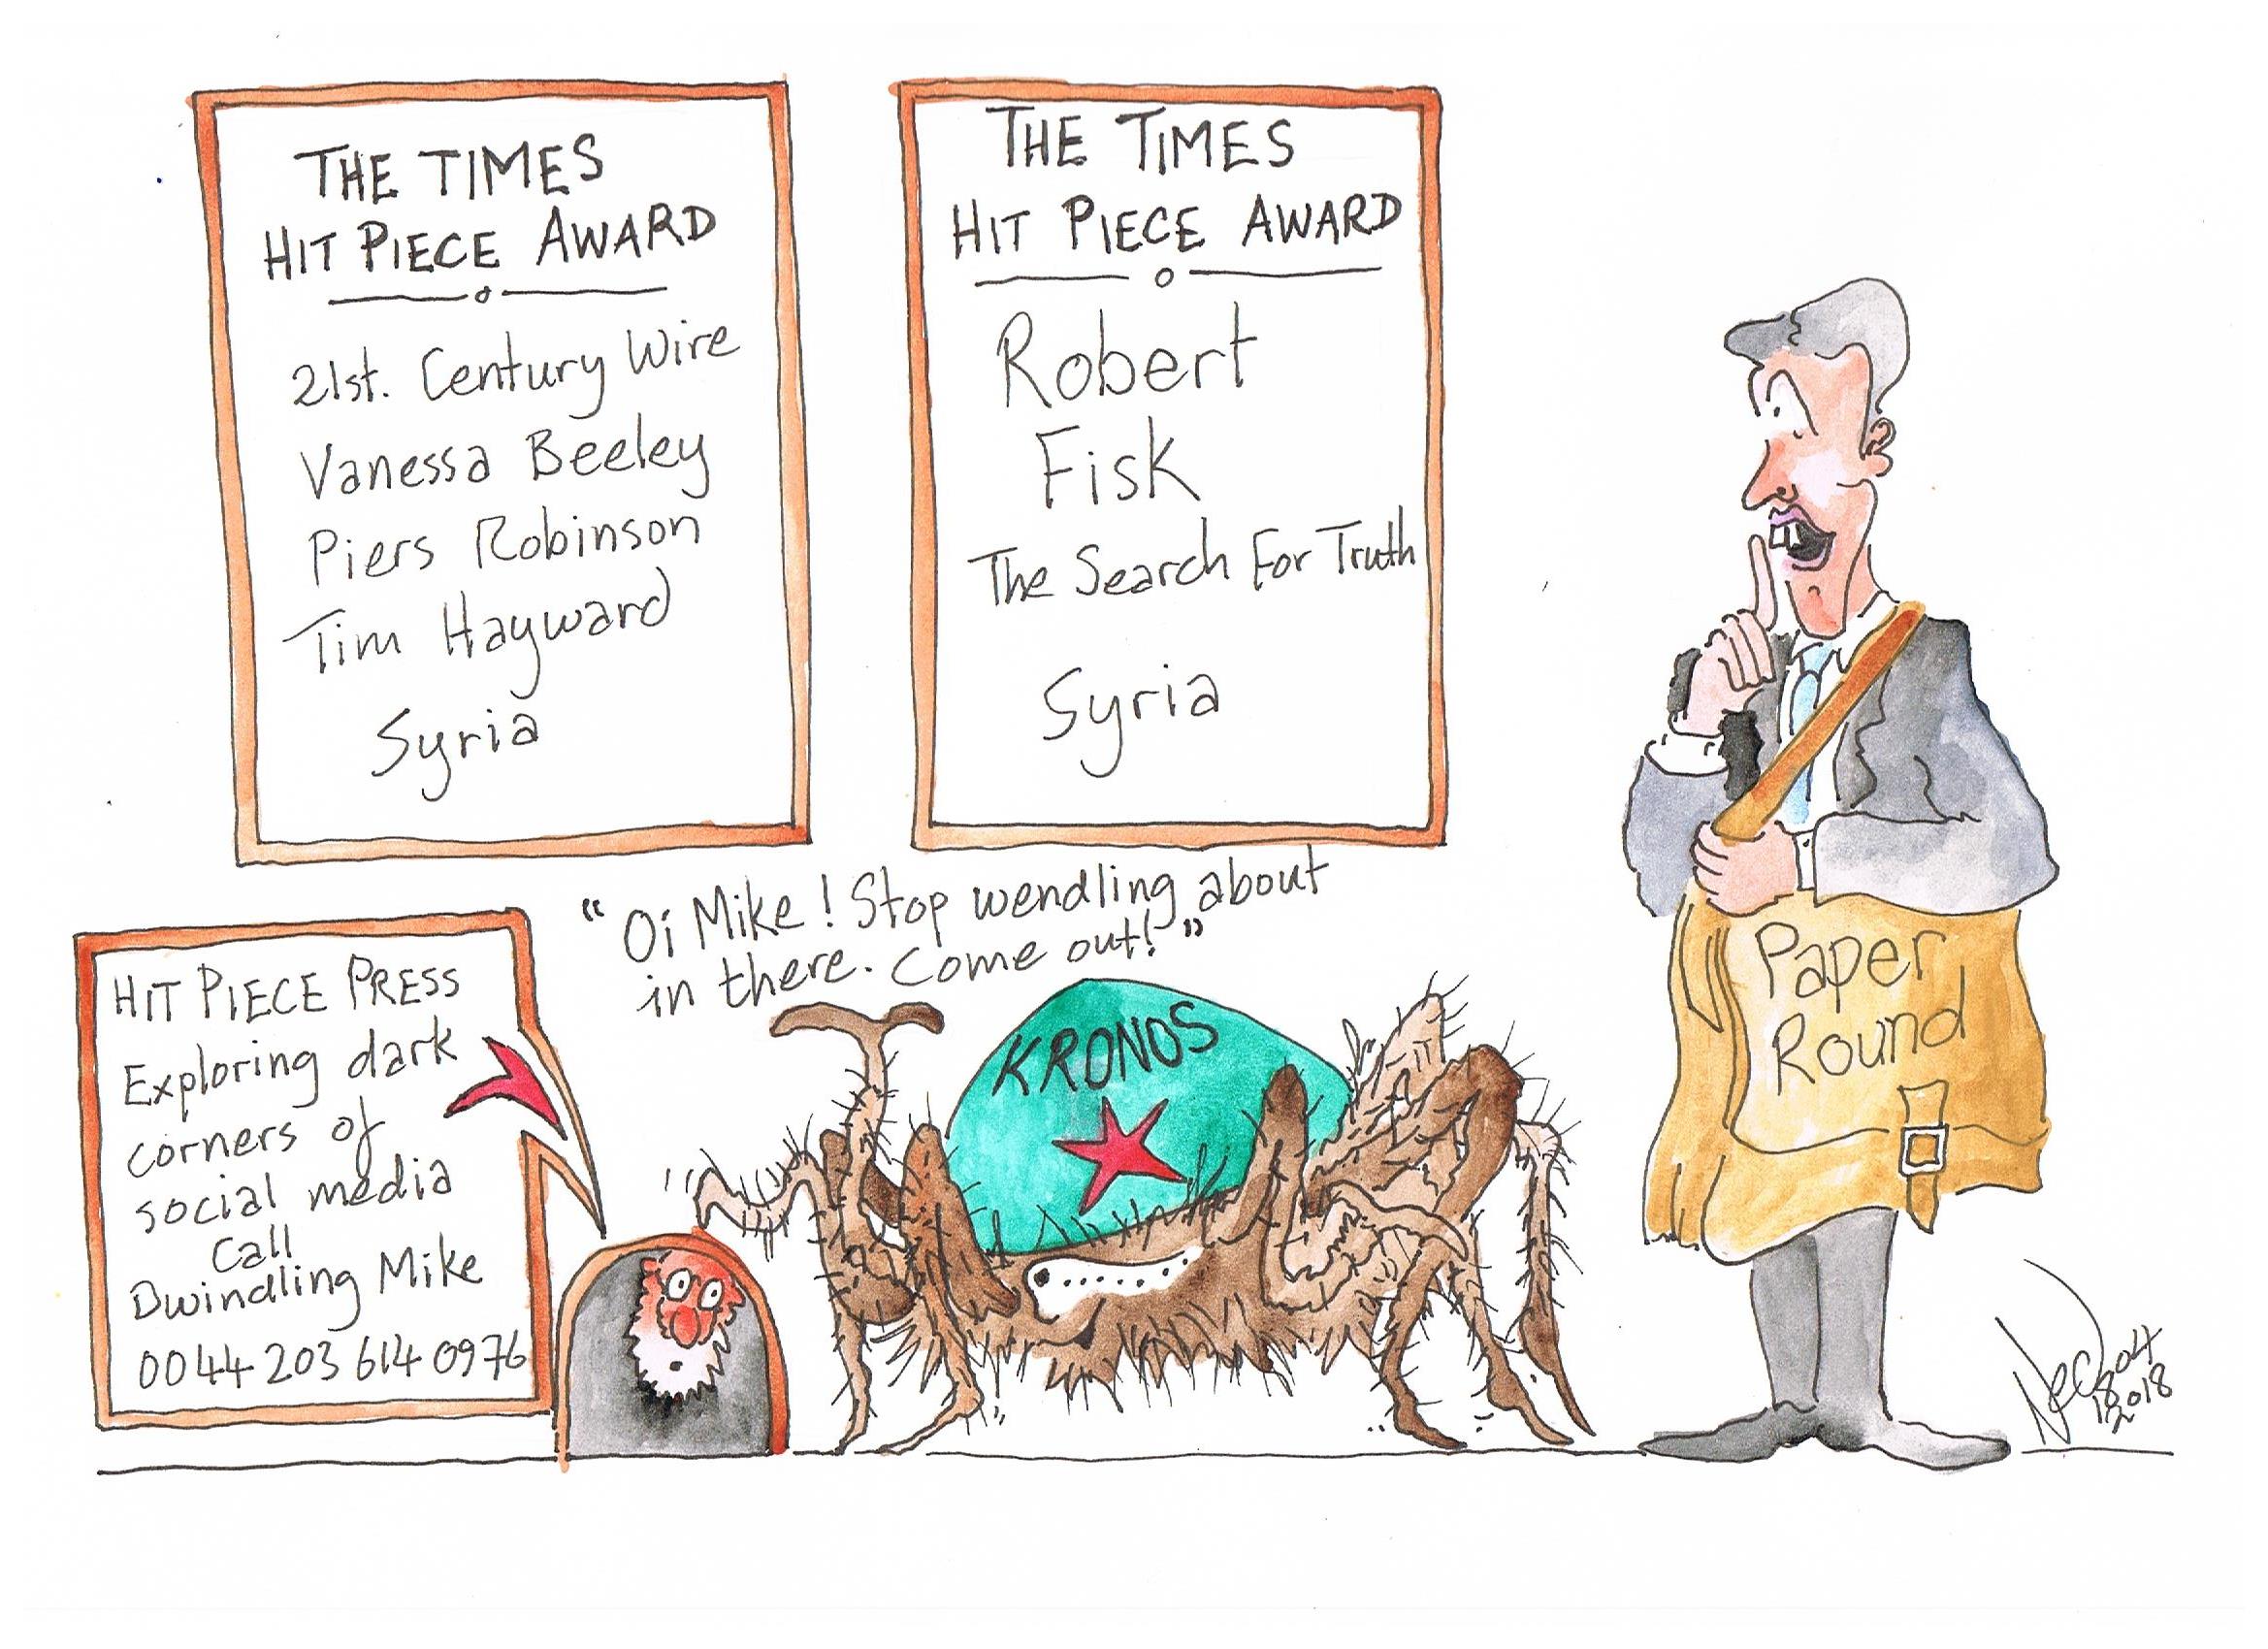 THE TIMES
HIT PIECE AWARD
21st. Century Wire
Vanessa Beeley
Piers Robinson
Tim Hayward
Syria
THE TIMES
HIT PIECE AWARD
Robert
Fisk
The Search For Truth
Syria
"Oi Mike! Stop wendling about
in there. Come out!"
HIT PIECE PRESS
Exploring dark
corners of
social media
Call
Dwindling Mike
0044 203 614 0976
KRONOS
Paper
Round
18
2018